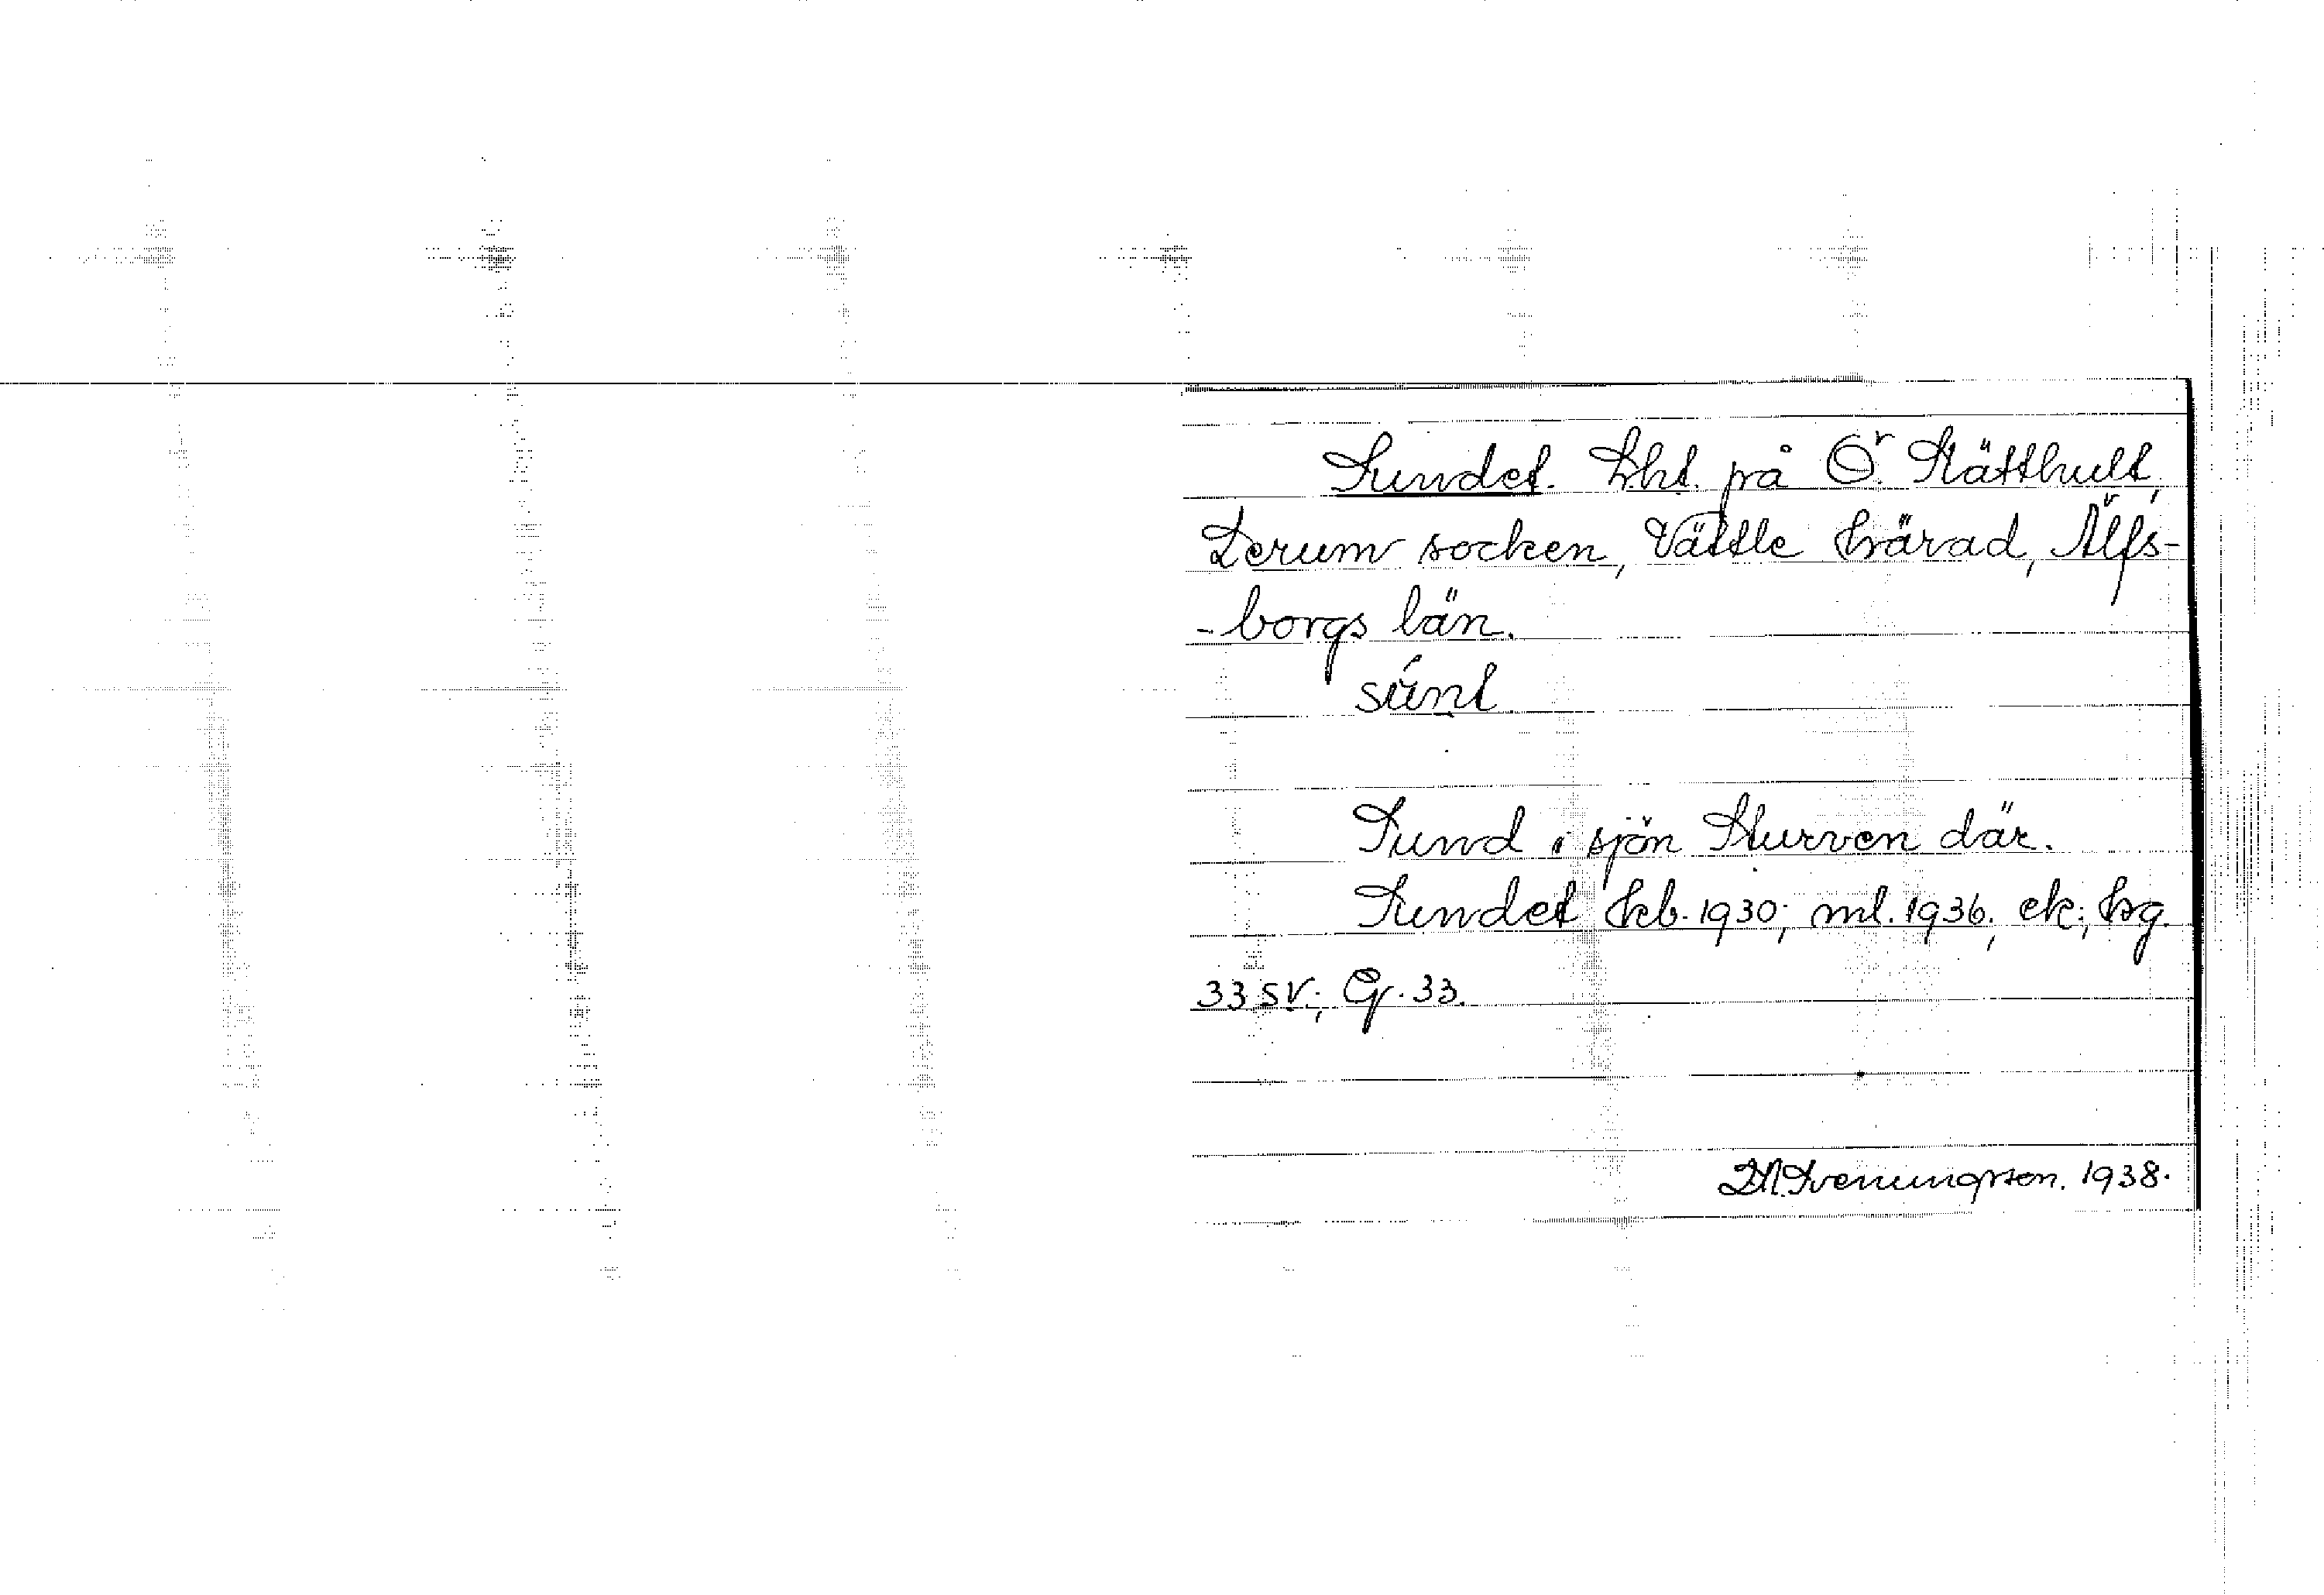 Sundet. Lht. på Ö. Slätthult,
Lerum socken, Vättle härad, Älfs-
- borgs län.
súnt
Sund i sjön Sturven där.
Sundet hkb. 1930; ml. 1936; ek; hg.
33 SV; G. 33.
Svenungsson. 1938.